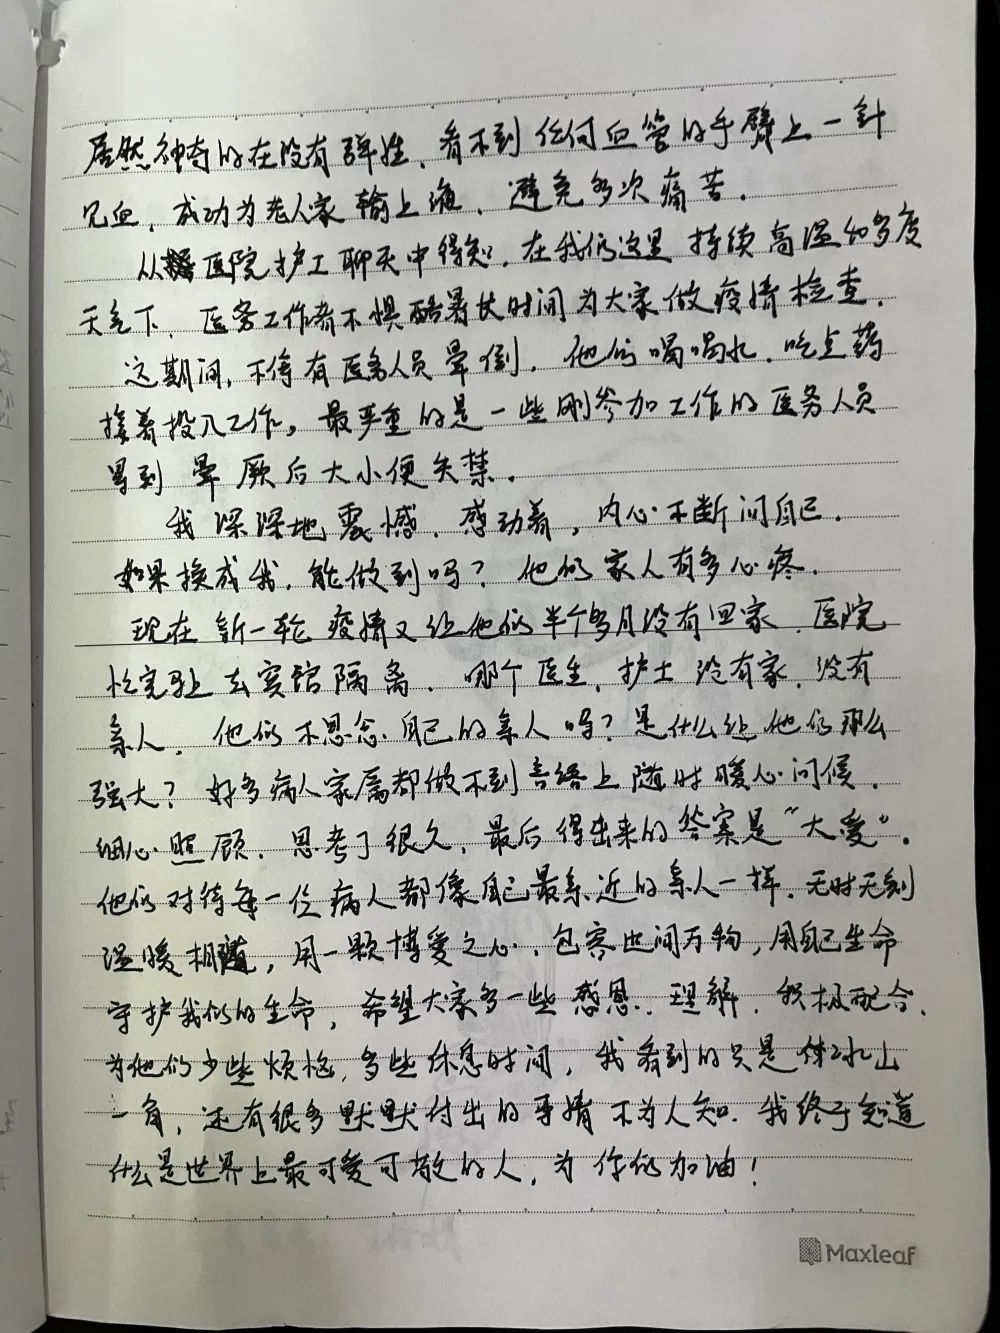 居然神奇的在没有弹性、看不到任何血管的手臂上一针
见血,成功为老人家输上液、避免多次痛苦.
从医院护工聊天中得知,在我们这里持续高温40多度
天气下、医务工作者不惧酷暑长时间为大家做疫情检查.
这期间,不停有医务人员晕倒.他们喝喝水.吃点药
接着投入工作。最严重的是一些刚参加工作的医务人员
累到晕厥后大小便失禁.
我深深地震憾.感动着,内心不断问自己.
如果换成我.能做到吗?他们家人有多心疼.
现在新一轮疫情又让他们半个多月没有回家.医院
忙完马上去宾馆隔离.哪个医生.护士没有家.没有
亲人.他们不思念自己的亲人吗?是什么让他们那么
强大?好多病人家属都做不到言语上随时暖心问候.
细心照顾.思考了很久,最后得出来的答案是“大爱”.
他们对待每一位病人都像自己最亲近的亲人一样.无时无刻
温暖相随,用一颗博爱之心.包容世间万物,用自己生命
守护我们的生命,希望大家多一些感恩.理解.积极配合.
为他们少些烦恼,多些休息时间,我看到的只是冰山
一角,还有很多默默付出的事情不为人知.我终于知道
什么是世界上最可爱可敬的人,为你们加油!
Maxleaf